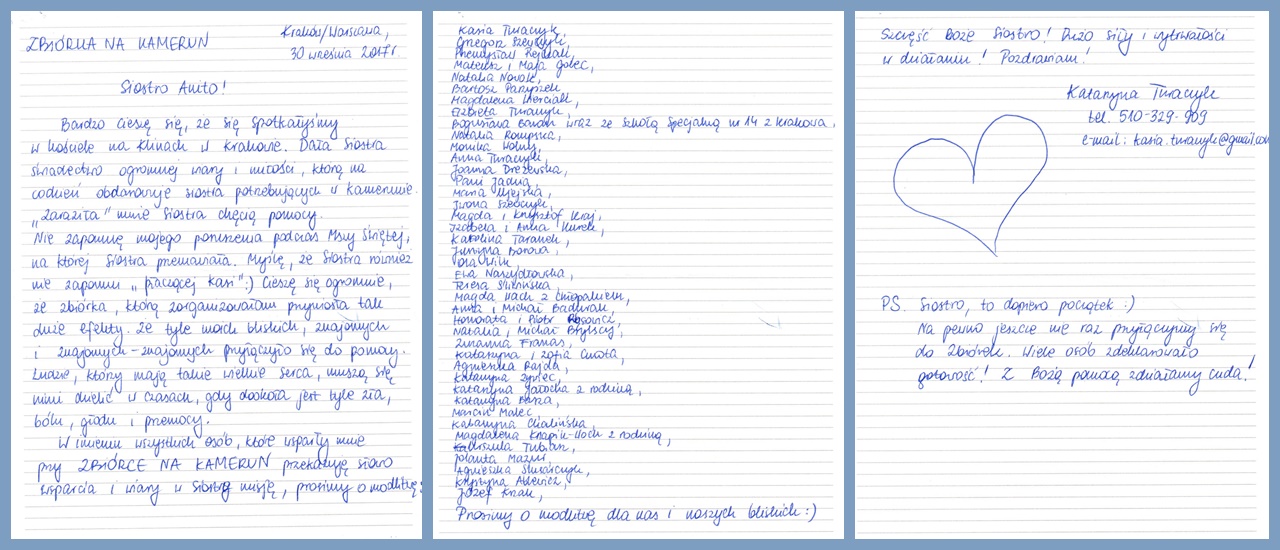 ZBIÓRKA NA KAMERUN
Kraków/Warszawa,
30 września 2017 r.
Siostro Anito!
Bardzo cieszę się, że się spotkałyśmy
w kościele na Klinach w Krakowie. Dała Siostra
świadectwo ogromnej wiary i miłości, którą na
codzień obdarowuje siostra potrzebujących w Kamerunie.
"Zaraziła" mnie Siostra chęcią pomocy.
Nie zapomnę mojego poruszenia podczas Mszy Świętej,
na której Siostra przemawiała. Myślę, że Siostra również
nie zapomni "płaczącej Kasi" :) Cieszę się ogromnie,
że zbiórka, którą zorganizowałam przyniosła takie
duże efekty. Że tyle moich bliskich, znajomych
i znajomych-znajomych przyłączyło się do pomocy.
Ludzie, którzy mają takie wielkie serca, muszą się
nimi dzielić w czasach, gdy dookoła jest tyle zła,
bólu, głodu i przemocy.
W imieniu wszystkich osób, które wsparły mnie
przy ZBIÓRCE NA KAMERUN przekazuję słowo
wsparcia i wiary w Siostry misję, prosimy o modlitwę:
Kasia Turaczyk,
Grzegorz Szewczyk,
Przemysław
Mateusz i Maja Golec,
Natalia Nowak,
Bartosz
Magdalena
Elżbieta Turaczyk,
Bogusława wraz ze Szkołą Specjalną nr 14 z Krakowa,
Natalia
Monika
Anna Turaczyk,
Joanna Drzewska,
Pani Jadzia,
Maria
Iwona Szewczyk,
Magda i Krzysztof Kraj,
Izabela i Anna Kurek,
Karolina Taranek,
Justyna
Ola Wilk,
Ewa
Teresa Śliwińska,
Magda Wach z chłopakiem,
Anna i Michał
Honorata i Piotr
Natalia i Michał Brylscy,
Zuzanna Franas,
Katarzyna i Zofia
Agnieszka Rajda,
Katarzyna Żywiec,
Katarzyna z rodziną,
Katarzyna
Marcin Malec,
Katarzyna Chalińska,
Magdalena Knapik-Woch z rodziną,
Urszula
Jolanta Mazur,
Agnieszka Ślusarczyk,
Krystyna
Józef Knak,
Prosimy o modlitwę dla nas i naszych bliskich :)
Szczęść Boże Siostro! Dużo siły i wytrwałości
w działaniu! Pozdrawiam!
Katarzyna Turaczyk
tel. 510-329-909
e-mail: kasia.turaczyk@gmail.com
PS. Siostro, to dopiero początek :)
Na pewno jeszcze nie raz przyłączymy się
do zbiórek. Wiele osób zdeklarowało
gotowość! Z Bożą pomocą zdziałamy cuda!